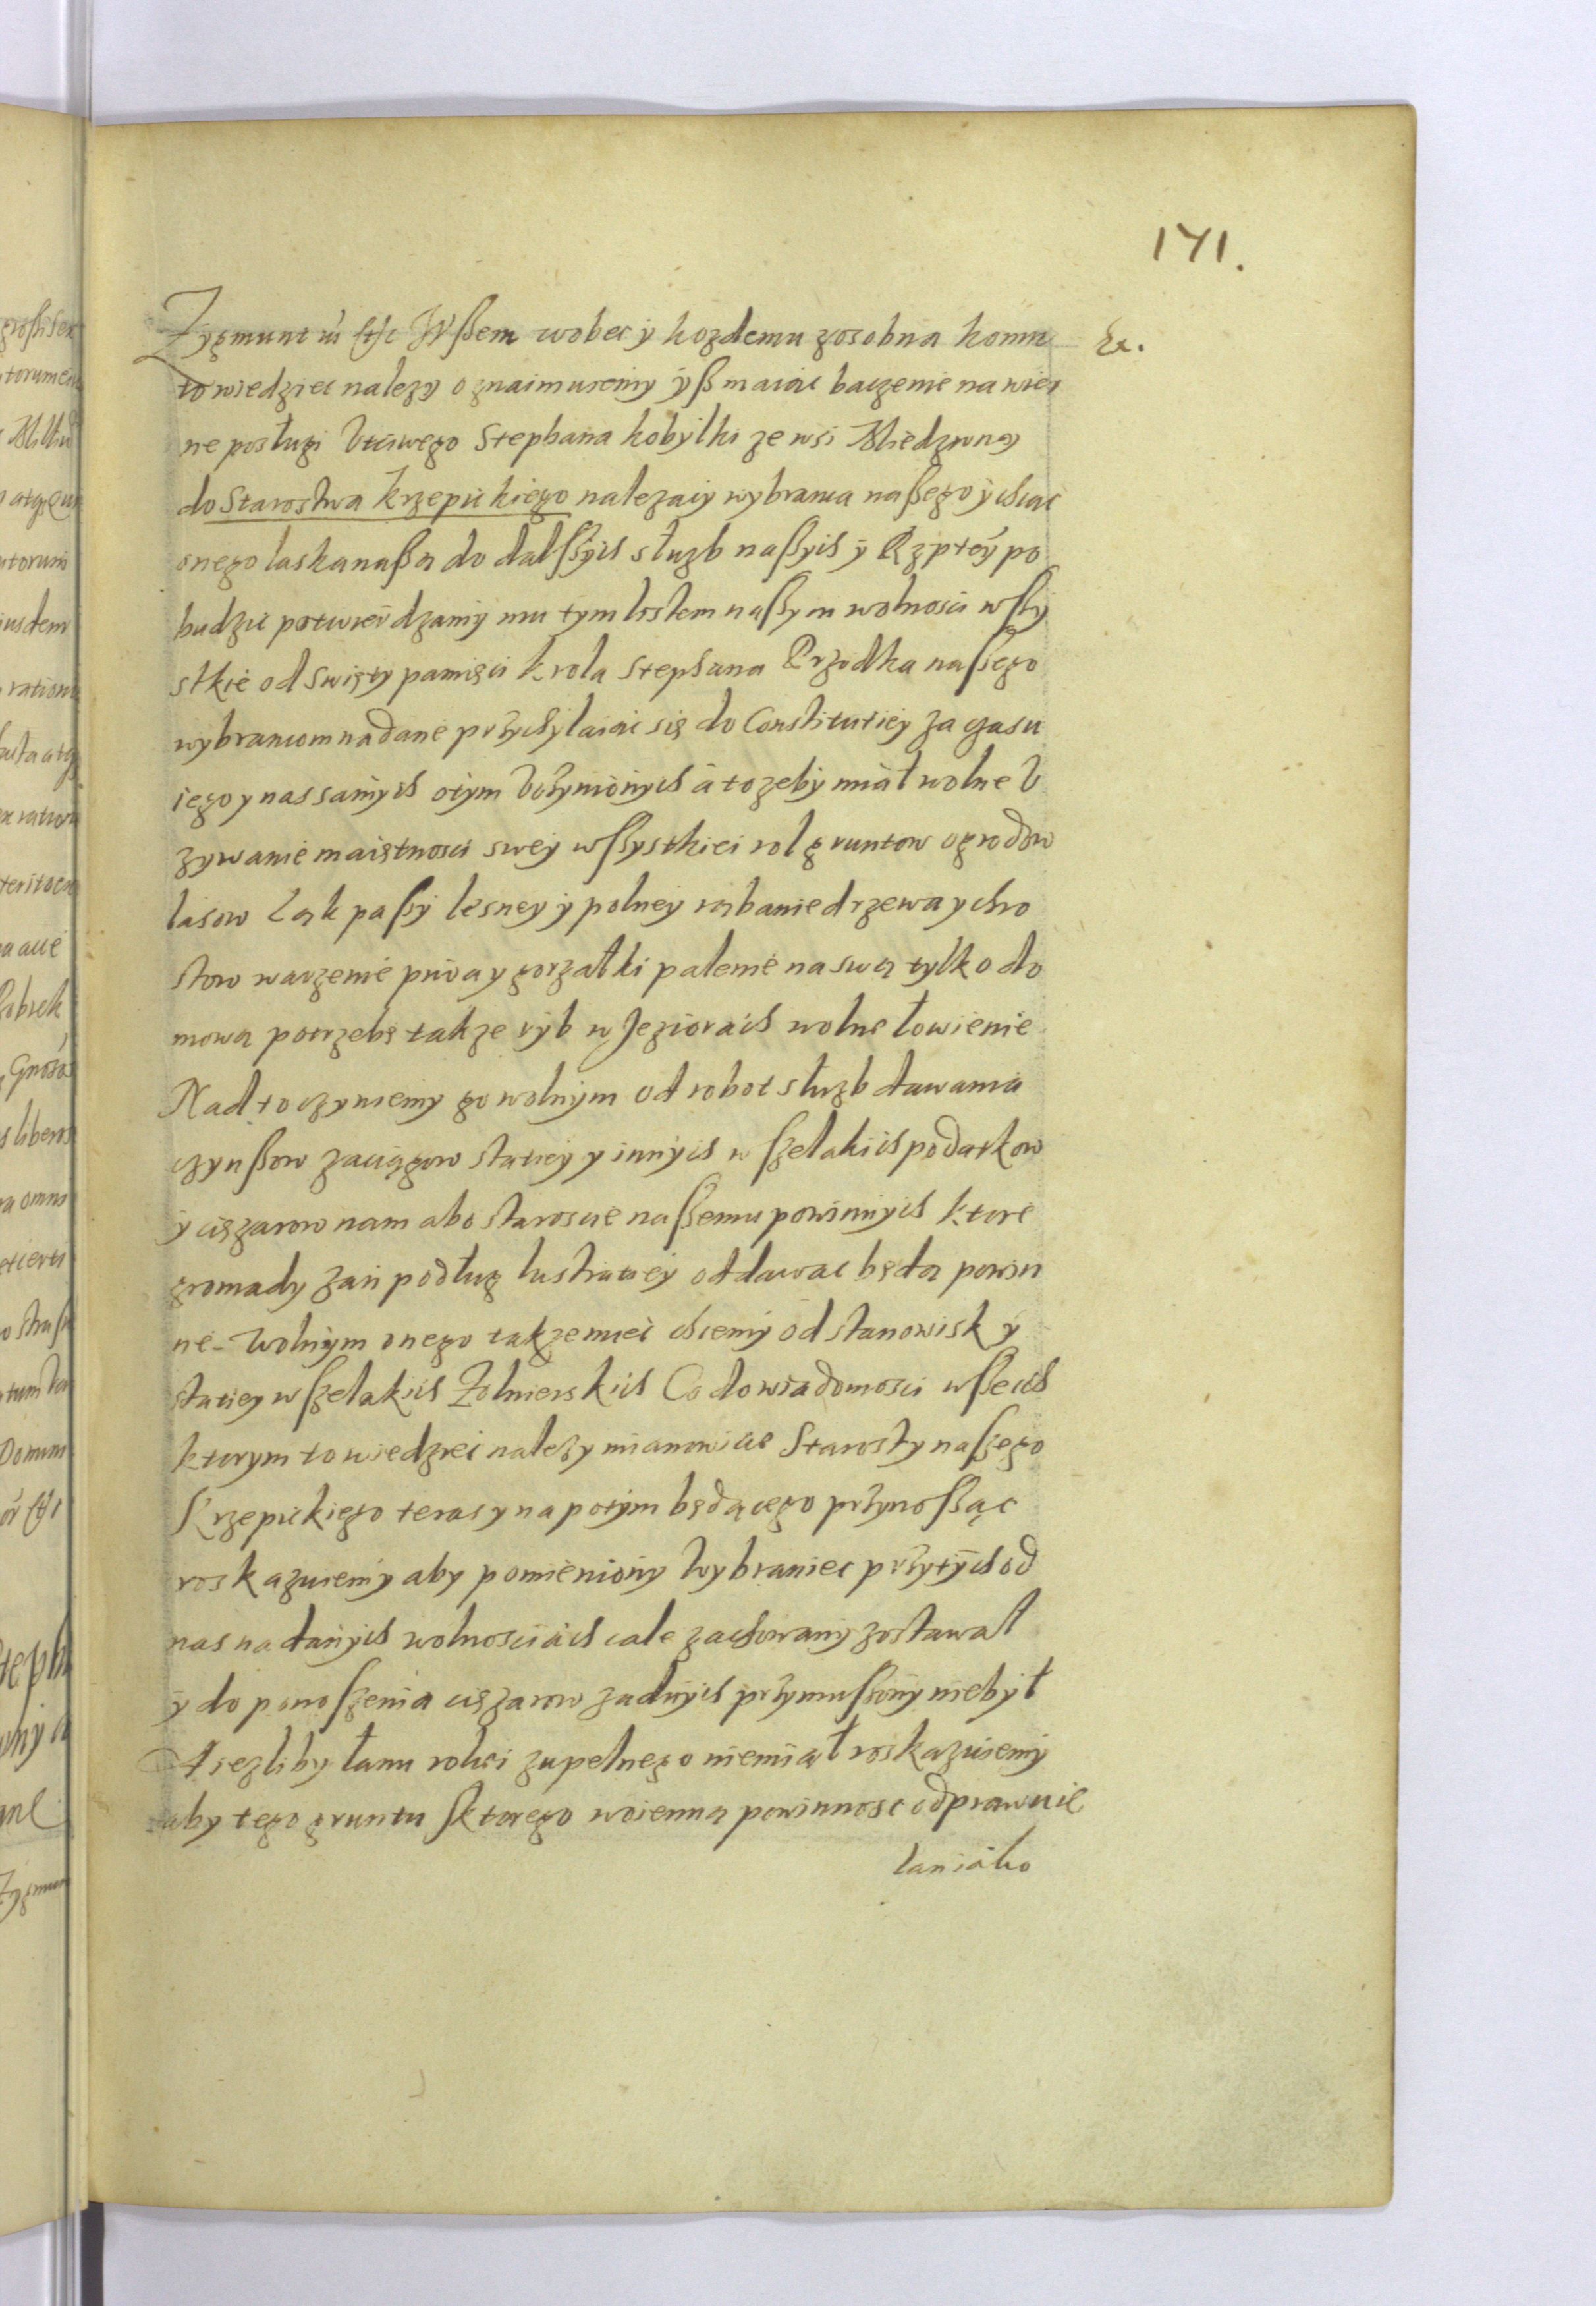 171.
Zygmunt etc Wßem wobec y kozdemu zosobna komu
to wiedziec nalezy oznaimuiemy yß maiąc baczenie na wier
ne posługi Uczciwego Stephana kobyłki ze wsi Miedzwney
do Starostwa krzepickiego nalezący wybranca naßego y chcąc
onego laską naßą do dalßych służb naßych y Rzptey po
budzic potwierdzamy mu tym listem naßym wolnosci wßy
stkie od swięty pamięci krola Stephana Przodka naßego
wybrancom nadane przychylaiąc się do Constitutiey za czasu
iego y nas samych o tym Uczynionych a to zeby miał wolne V
zywanie maiętnosci swey wßystkiei rol gruntow ogrodow
lasow Łąk paßy lesney y polney rąbanie drzewa y chro
stow warzenie piwa y gorzałki palenie na swą tylko do
mową potrzebę takze ryb w Jeziorach wolne łowienie
Nad to czyniemy go wolnym od robot służb dawania
czynßow zaciągow statiey y innych wszelakich podatkow
y cięzarow nam abo staroscie naßemu powinnych ktore
gromady zań podług lustratiey oddawac będą powin
ne - Wolnym onego takze miec chcemy od stanowisk y
statiey wszelakich Żołnierskich Co do wiadomosci wßech
ktorym to wiedziec należy mianowicie Starosty naszego
Krzepickiego teras y na potym będącego przynoßąc
roskazuiemy aby pomieniony Wybraniec przy tych od
nas nadanych wolnosciach cale zachowany zostawał
y do ponoszenia cięzarow zadnych przymußony nie był
A iezliby łanu rolei zupelnego nie miał roskazuiemy
aby tego gruntu sktorego woienną powinnosc odprawuie